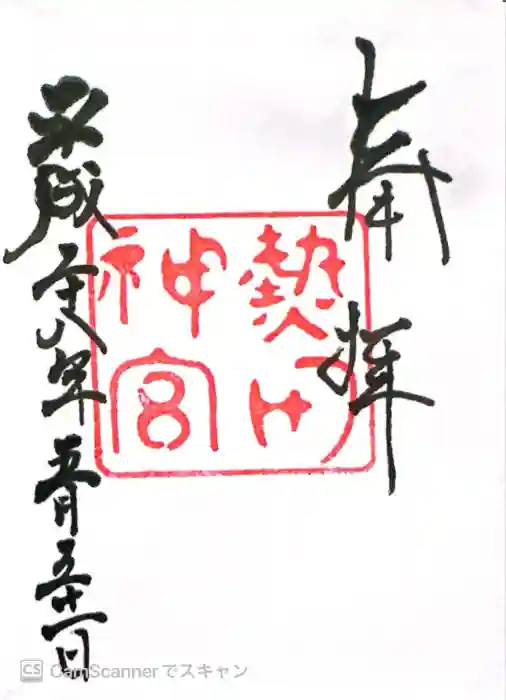 奉拝
熱田
神宮
平成二十八年五月十一日
CS CamScannerでスキャン